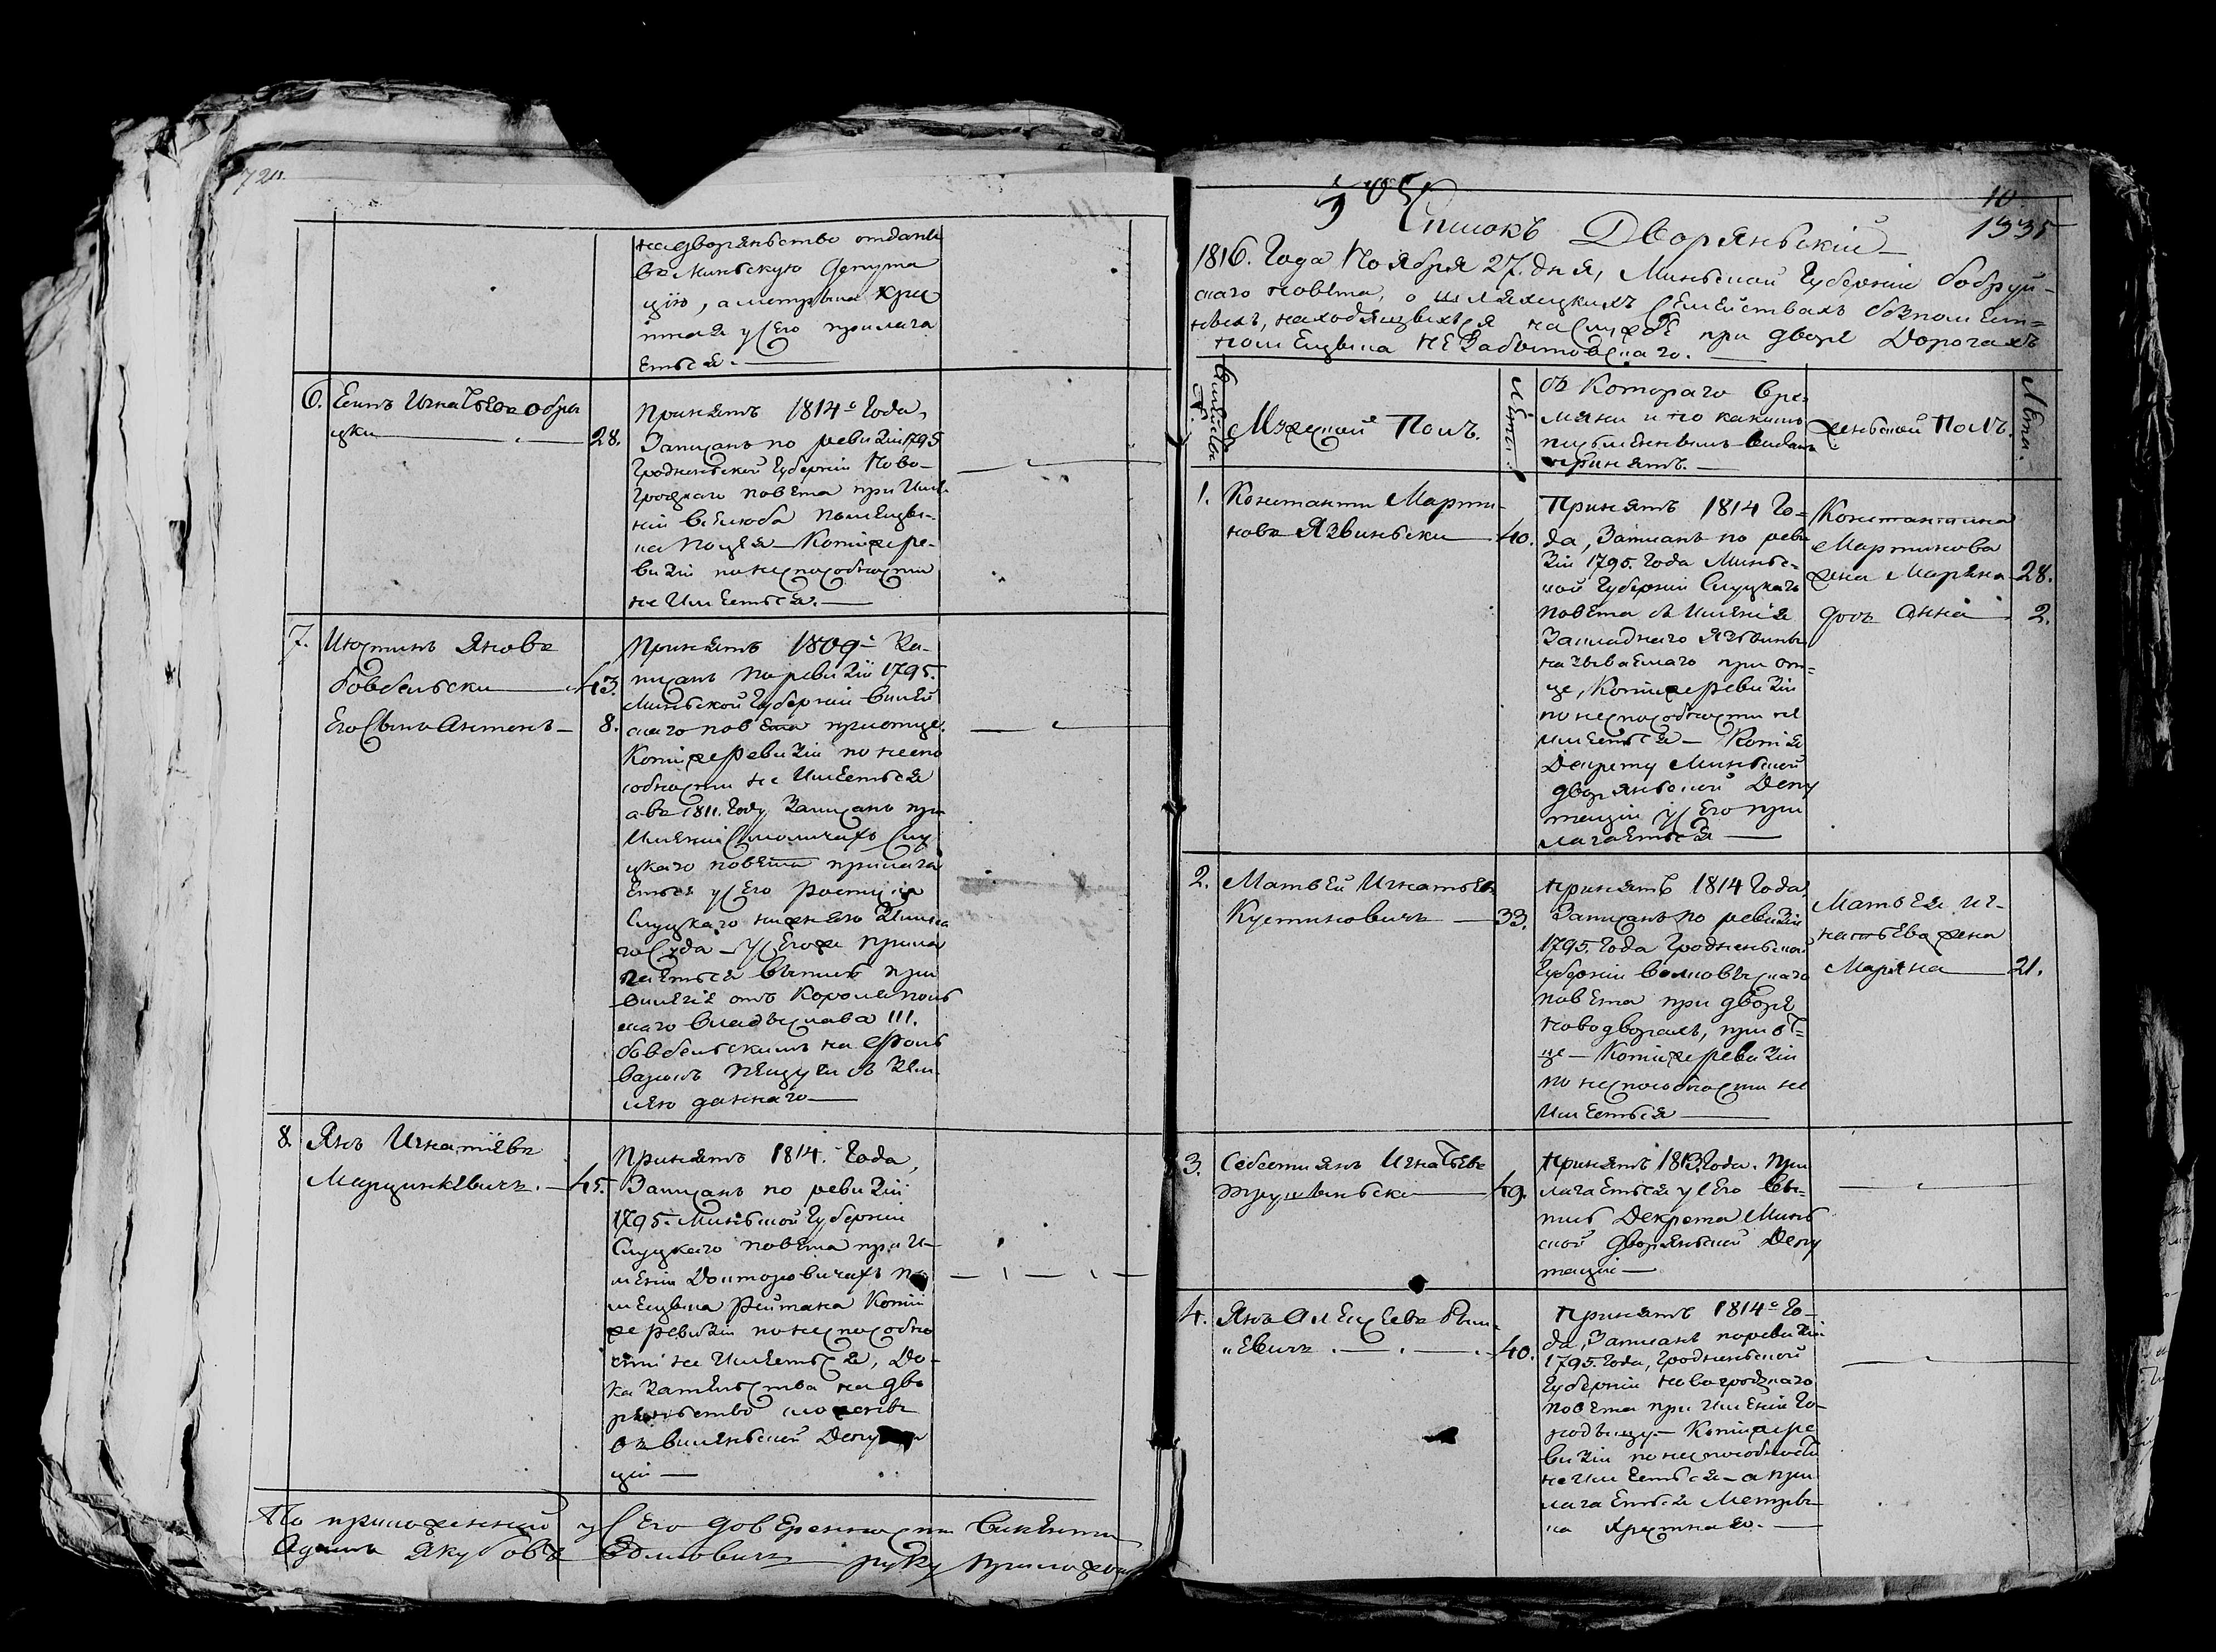 720.
на дворянство отдани
въ Минскую Депута
цію, а метрыка хре
стная у сего прилага
ется.
6. Есипъ Игнатьевъ Обры
цки 28.
Принятъ 1814го Года,
Записанъ по ревизіи 1795
Гродненской Губерніи Ново-
грудскаго повета при Име-
ніи помещы-
ка Копіи же ре-
визіи по неспособности
не Имеется.
7. Иустинъ Яновъ
Бовбельски 43.
Его Сынъ Антонъ 8.
Принятъ 1809го За-
писанъ по ревизіи 1795.
Минской Губерніи Вилей
скаго повета при отце.
Копіи же Ревизіи по неспо
собности не Имеется
а въ 1811. Году Записанъ при
Именіи Смоличахъ Слу
цкаго повета прилага
ется у Сего
Слуцкаго нижняго Земска
го Суда у Сего же прила
гается выпись при
вилегіе отъ Короля поль
скаго Владыслава III.
Бовбельскимъ на Фоль
варокъ съ Зем-
лею даннаго
8. Янъ Игнатіевъ
Марцинкевичъ. 45.
Принятъ 1814. Года,
Записанъ по ревизіи
1795. Минской Губерніи
Слуцкаго повета при И-
меніи Докторовичахъ по
мещыка Рейтана Копіи
же ревизіи по неспособно
сти не Имеется, До-
казательства на дво
рянство
въ Виленской Депута
ціи
По приложенной у Сего доверенности Викенти
Адамъ Якубовъ руку приложилъ
10.
1335
Списокъ Дворянскій
1816. Года Ноября 27. дня, Минской Губерніи Бобруй-
скаго повета, о шляхецкихъ Семействахъ безпомест-
ныхъ, находящыхся на Службе при дворе Дорогахъ
помещыка Незабытовскаго.
Фамилія
№.
Мужской Полъ.
Лета.
Съ Котораго Вре-
мяни и по какимъ
писменнымъ видамъ
принятъ.
Женской Полъ.
Лета.
1. Константи Марти-
новъ Язвински 40.
Принятъ 1814 Го-
да, Записанъ по реви
зіи 1795. Года Минс-
кой Губерніи Слуцкаго
повета въ Именіи
Закладнаго Язвины
называемаго при от-
це, Копіи же ревизіи
по неспособности не
Имеется Копія
Декрету Минской
дворянской Депу
таціи у Сего при
лагается
Константина
Мартинова
жена Марянна 28.
дочь Анна 2.
2. Матвей Игнатьевъ
Кустиновичъ 33.
Принятъ 1814 Года
Записанъ по ревизіи
1795. Года Гродненской
Губерніи Волковыскаго
повета при дворе
Новодворахъ, при от-
це Копіи же ревизіи
по неспособности не
Имеется
Матвея Иг-
натьева жена
Марянна 21.
3. Себестиянъ Игнатьевъ
49.
Принятъ 1813. Года. При
лагается у Сего Вы-
пись Декрета Минс
кой дворянской Депу
таціи
4. Янъ Алексеевъ Рым-
„евичъ 40.
Принятъ 1814го Го-
да, Записанъ по ревизіи
1795. Года, Гродненской
Губерніи Новогрудскаго
повета при Именіи Го-
Копіи же ре
визіи по неспособности
не Имеется а при
лагается Метры
ка Хрестная.